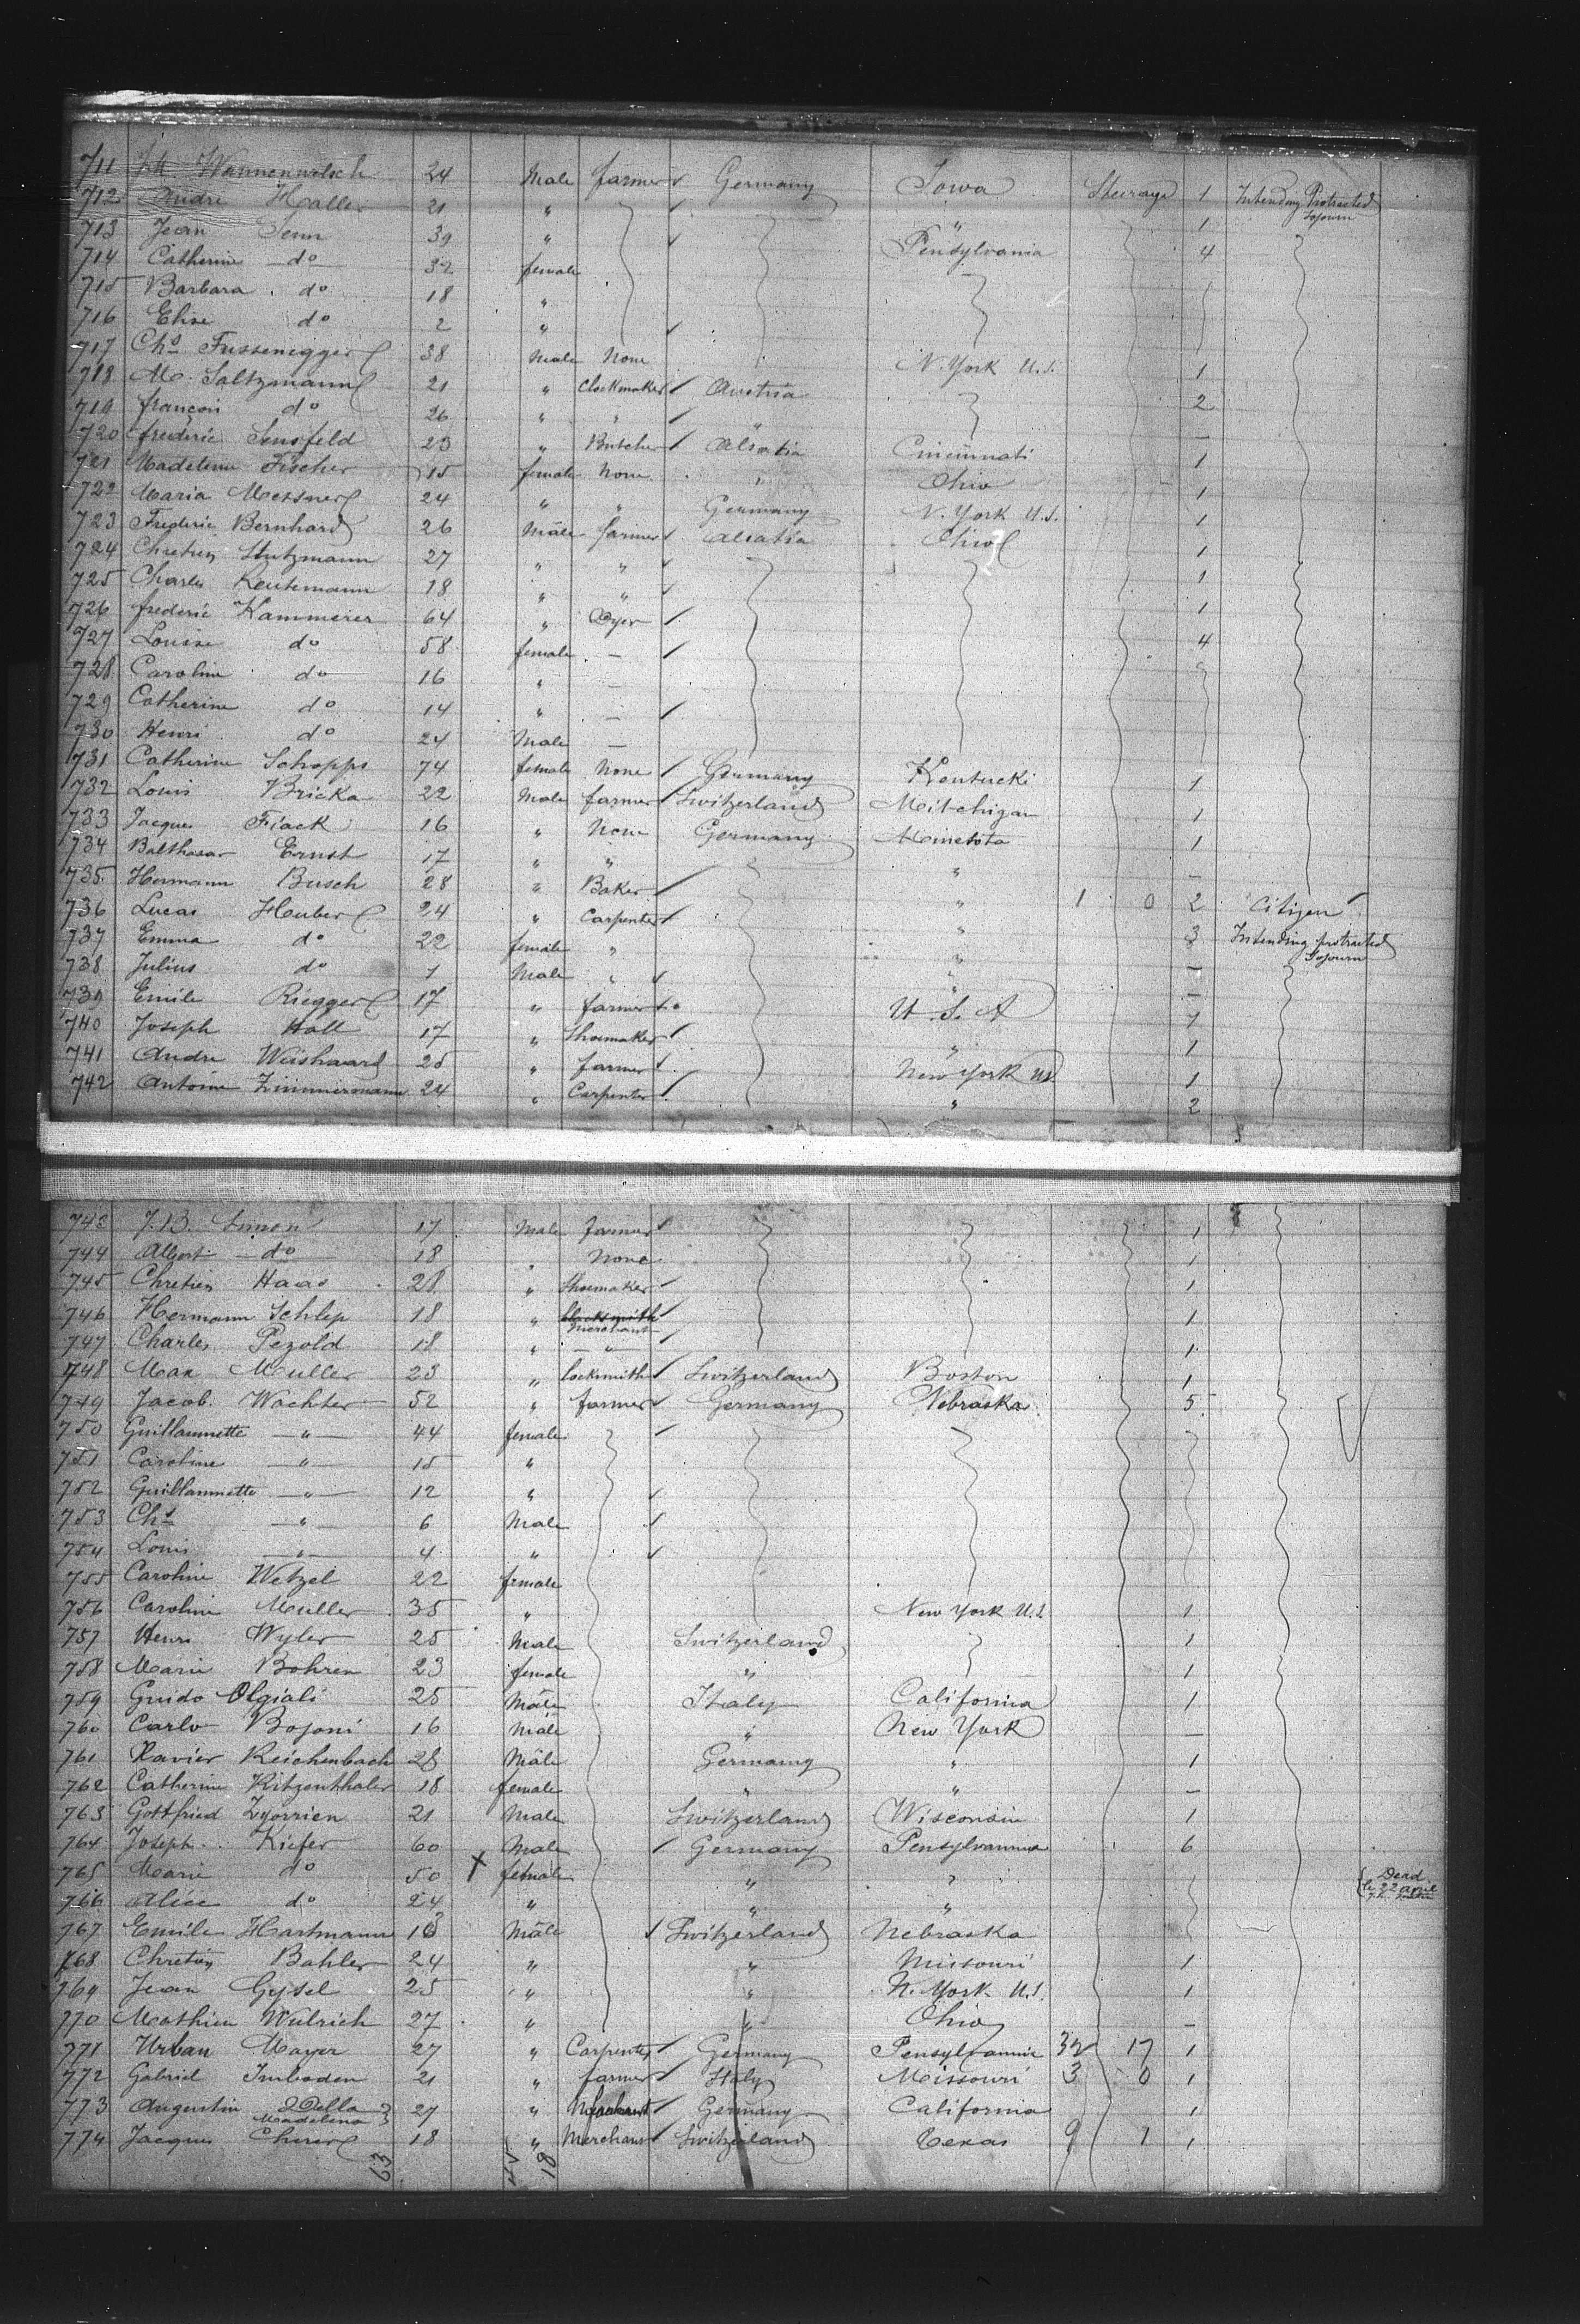 711 Wannenwetsch 24 Male farmer Germany Iowa Steerage 1 Intending Protracted Sojourn
712 André Haller 21 " " 1
713 Jean Senn 39 " Pensylvania 4
714 Catherine do 32 female
715 Barbara do 18 "
716 Elise do 2 "
717 Chs Fussenegger 38 Male None N. York U.S. 1
718 M. Saltzmann 21 " Clockmaker Austria 2
719 françois do 26 " " " —
720 frederic Sensfeld 23 " Butcher Alsatia Cincinnati 1
721 Madeleine Fischer 15 female None " Ohio 1
722 Maria Messner 24 " " Germany N. York U.S. 1
723 Frederic Bernhard 26 Male farmer Alsatia Ohio 1
724 Chretien Stutzmann 27 " " 1
725 Charles Reutemann 18 " " 1
726 frederic Kammerer 64 " Dyer 4
727 Louise do 58 female —
728 Caroline do 16 " —
729 Catherine do 14 " —
730 Henri do 24 Male —
731 Catherine Schopps 74 female None Germany Kentucki 1
732 Louis Bricka 22 Male farmer Switzerland Mitchigan 1
733 Jacques Fiack 16 " None Germany Minesota 1
734 Balthasar Ernst 17 " " " —
735 Hermann Busch 28 " Baker " 1 0 2 Citizen
736 Lucas Huber 24 " Carpenter " 3 Intending protracted Sojourn
737 Emma do 22 female " " —
738 Julius do 1 Male " " —
739 Emile Riegger 17 " farmer U.S.A 1
740 Joseph Hall 17 " Shoemaker " 1
741 Andre Weishaard 25 " farmer New York US. 1
742 Antoine Zimmermann 24 " Carpenter " 2
743 J.B. Simon 17 Male farmer 1
744 Albert do 18 " None 1
745 Chretien Haas 28 " Shoemaker 1
746 Hermann Schlep 18 " blacksmith merchant 1
747 Charles Pezold 18 " " 1
748 Max Muller 23 " Locksmith Switzerland Boston 1
749 Jacob Wachter 52 " farmer Germany Nebraska 5
750 Guillaumette " 44 female
751 Caroline " 15 "
752 Guillaumette " 12 "
753 Chs " 6 Male
754 Louis " 4 "
755 Caroline Wetzel 22 female
756 Caroline Muller 35 " New York U.S. 1
757 Henri Wyler 25 Male Switzerland 1
758 Marie Bohren 23 female " 1
759 Guido Olgiati 25 Male Italy California 1
760 Carlo Bojoni 16 Male " New York —
761 Xavier Reichenbach 28 Male Germany " 1
762 Catherine Kitzenthaler 18 female " " —
763 Gottfried 21 Male Switzerland Wisconsin 1
764 Joseph Kiefer 60 Male Germany Pensylvannia 6
765 Marie do 50 X female " " Dead le 22 april
766 Alice do 24 " " "
767 Emile Hartmann Male Switzerland Nebraska
768 Chretien Bahler 24 " " Missouri 1
769 Jean Gysel 25 " " N. York U.S. 1
770 Mathieu Wulrich 27 " " Ohio —
771 Urban Mayer 27 " Carpenter Germany Pensylvannie 32 17 1
772 Gabriel Imboden 21 " farmer Italy Missouri 3 0 1
773 Augustin Della Madelena 27 " Germany California 1
774 Jacques 18 " Merchant Switzerland Texas 9 1 1
63 18